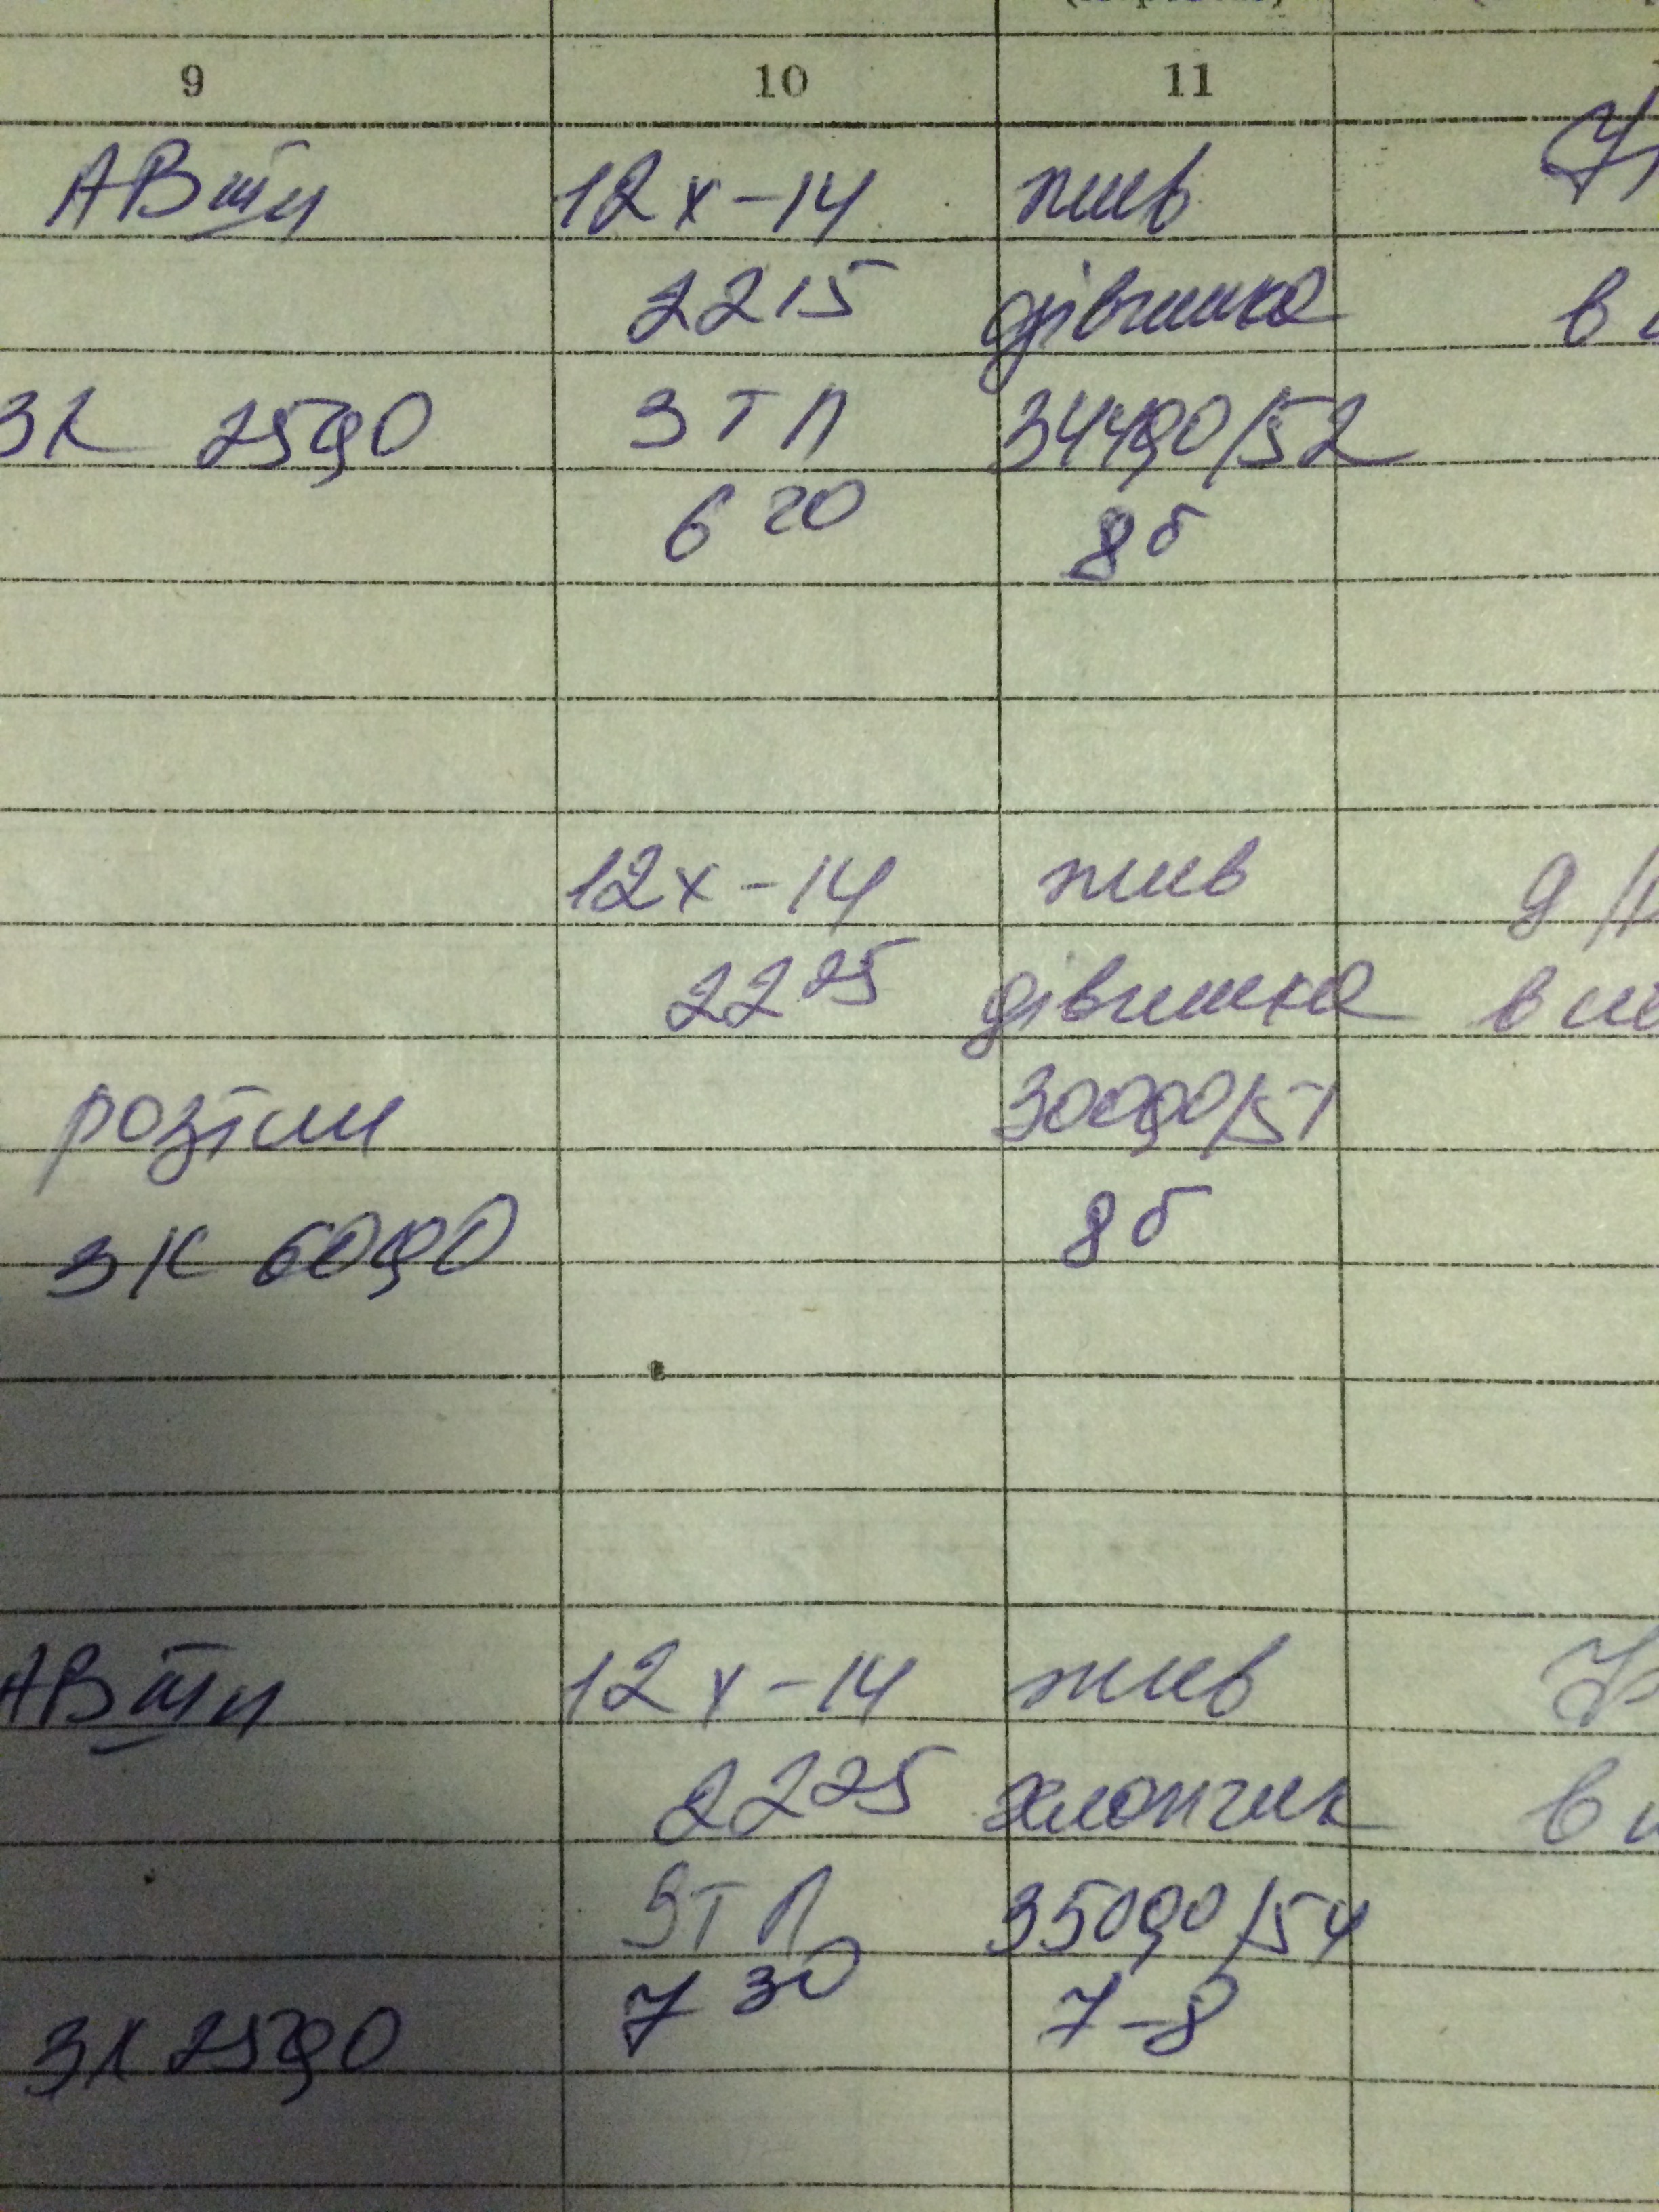 9 10 11
АВтп 12 х-14 жив
22 15 дівчинка в
ЗК 250,0 ЗТП 3440,0/52
6 20 8б
12х-14 жив
22 25 дівчинка
розтин 3000,0/51
ЗК 600,0 8б
АВтп 12х-14 жив
22 25 хлопчик в
ЗТП 3500,0/54
7 30 7-8
ЗК 250,0